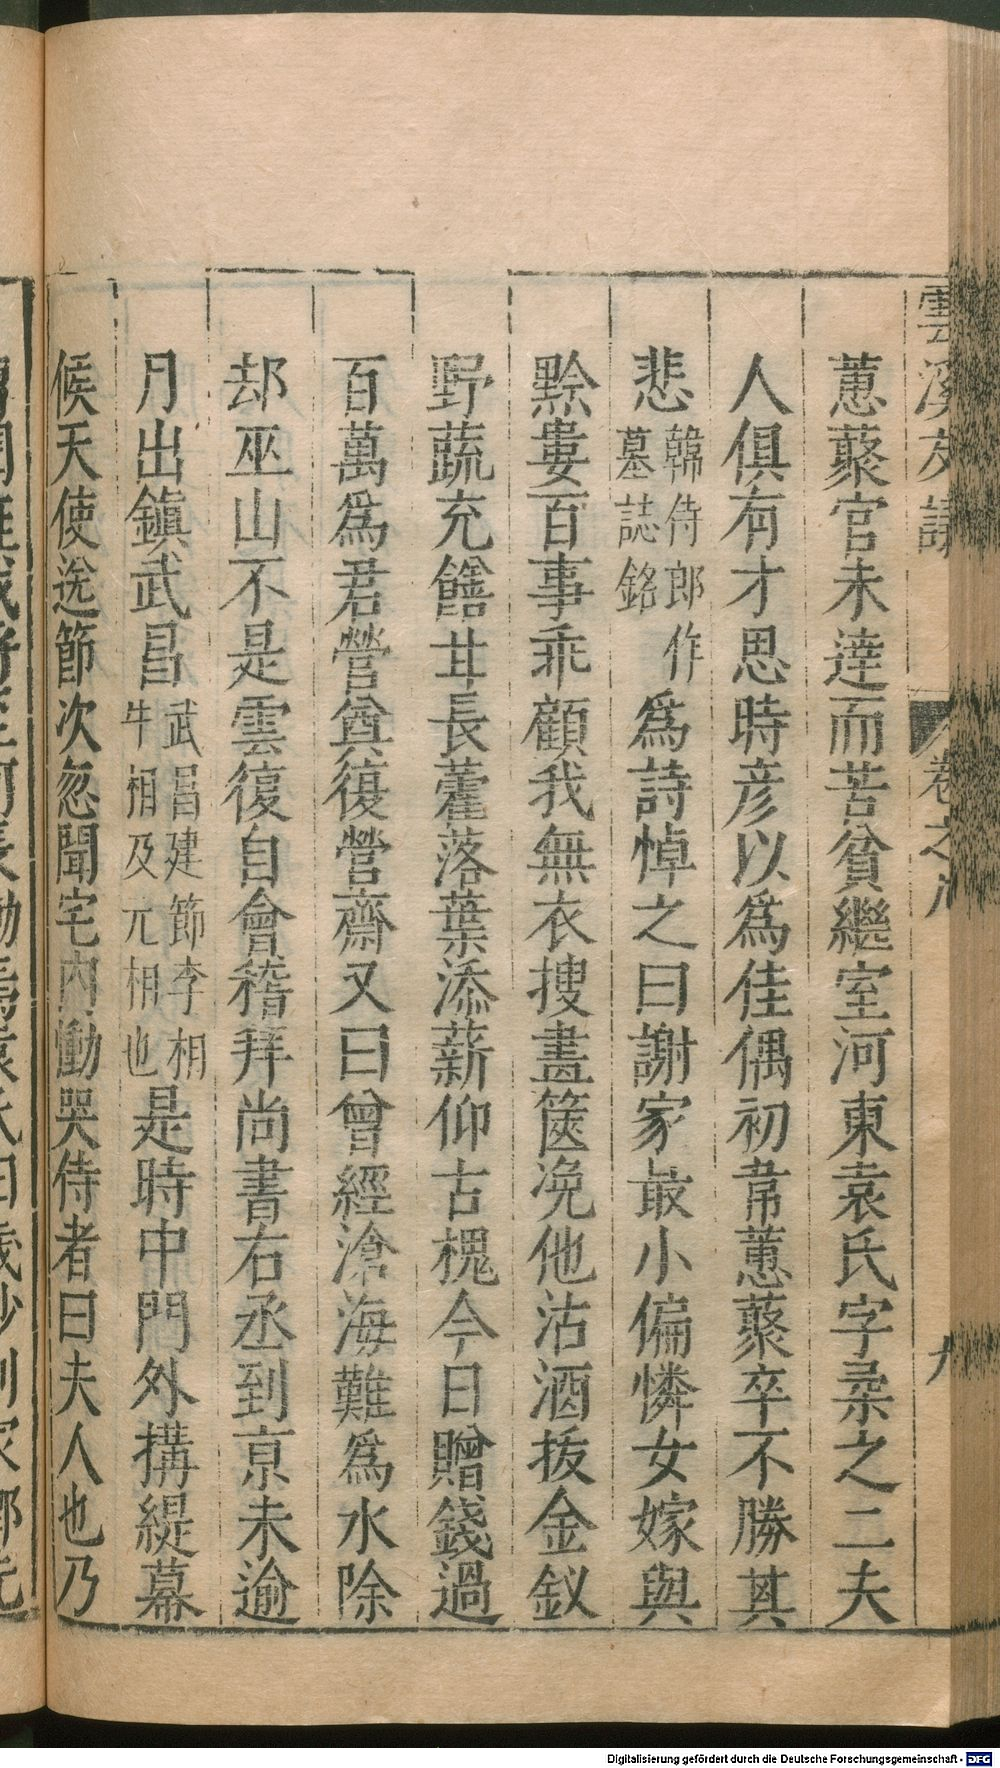 雲溪友議 卷之八 九
蕙藂官未達而苦貧繼室河東袁氏字柔之二夫
人俱有才思時彦以爲佳偶初韋蕙藂卒不勝其
悲韓侍郎作墓誌銘爲詩悼之曰謝家最小偏憐女嫁與
黔婁百事乖顧我無衣搜盡篋凂他沽酒拔金釵
野蔬充饍甘長藿落葉添薪仰古槐今日贈錢過
百萬爲君營奠復營齋又曰曾經滄海難爲水除
却巫山不是雲復自會稽拜尚書右丞到京未逾
月出鎮武昌武昌建節李相牛相及元相也是時中門外搆緹幕
候天使送節次忽聞宅內慟哭侍者曰夫人也乃
Digitalisierung gefördert durch die Deutsche Forschungsgemeinschaft - DFG